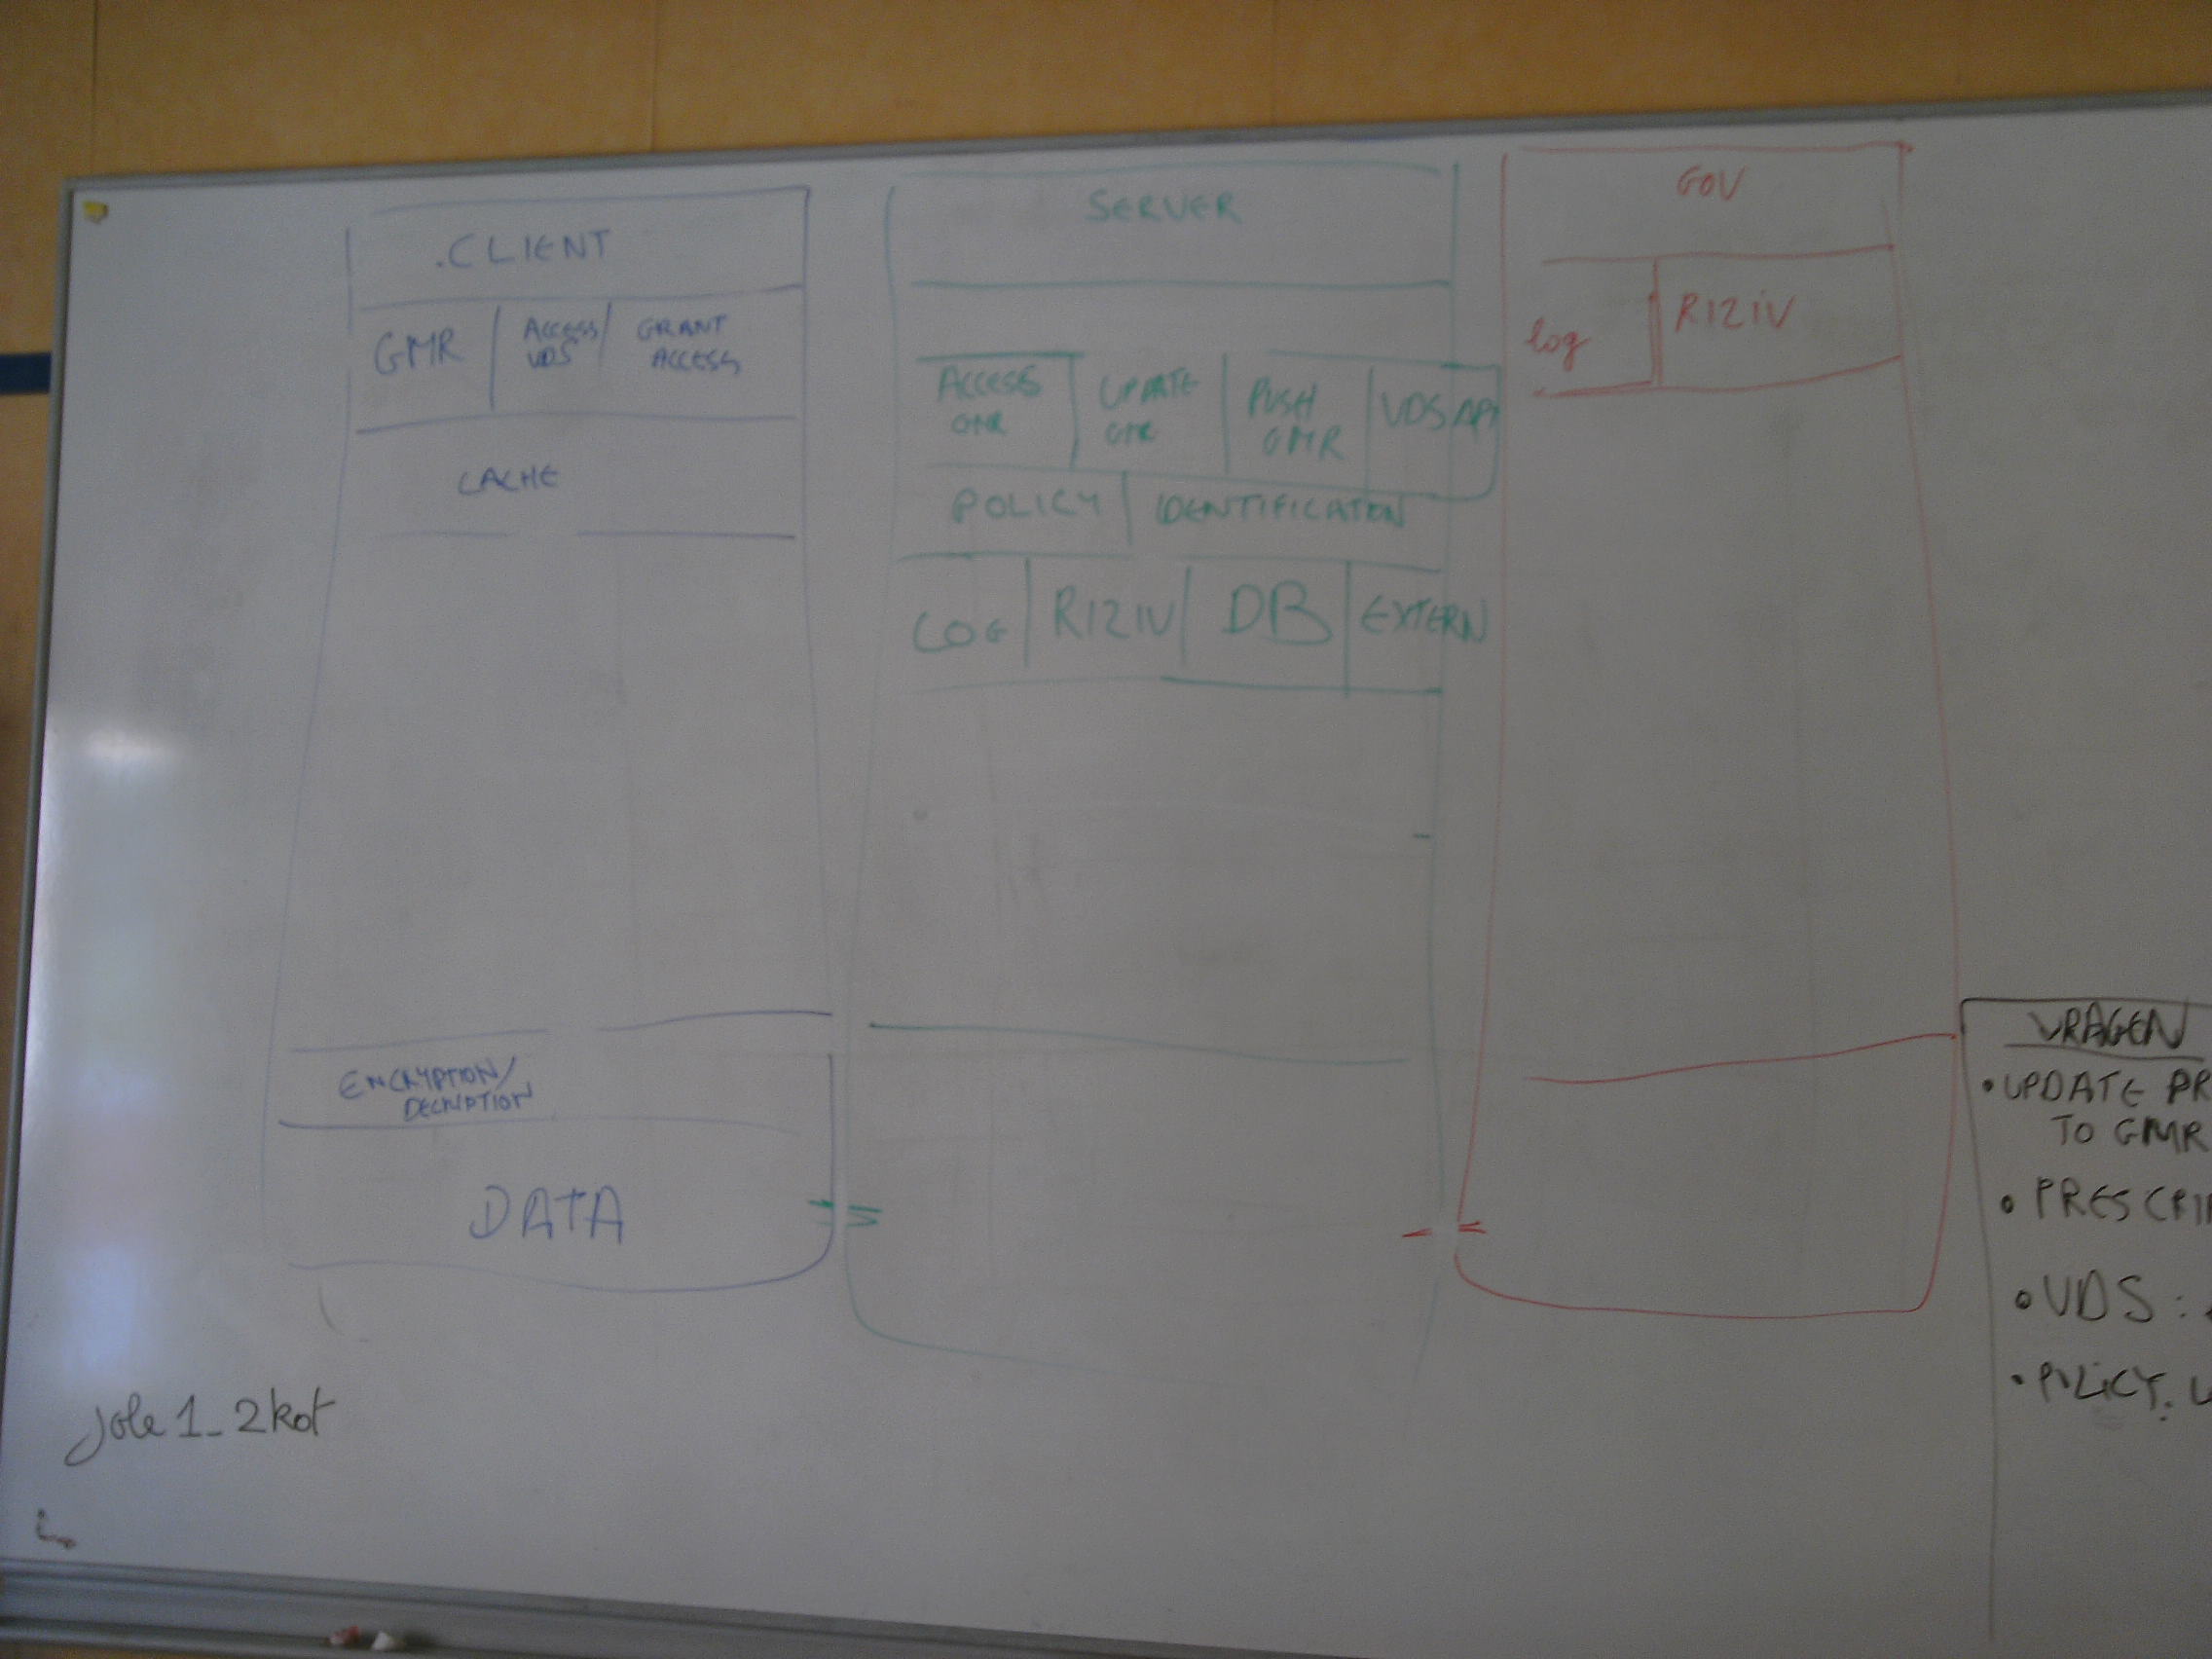 .CLIENT
GMR
ACCESS
VDS
GRANT
ACCESS
CACHE
ENCRYPTION/
DECRIPTION
DATA
SERVER
ACCESS
GMR
UPDATE
GMR
PUSH
GMR
VDS API
POLICY
IDENTIFICATION
LOG
RIZIV
DB
EXTERN
GOV
log
RIZIV
VRAGEN
• UPDATE PR
TO GMR
• PRESCRIP
• VDS :
• POLICY.